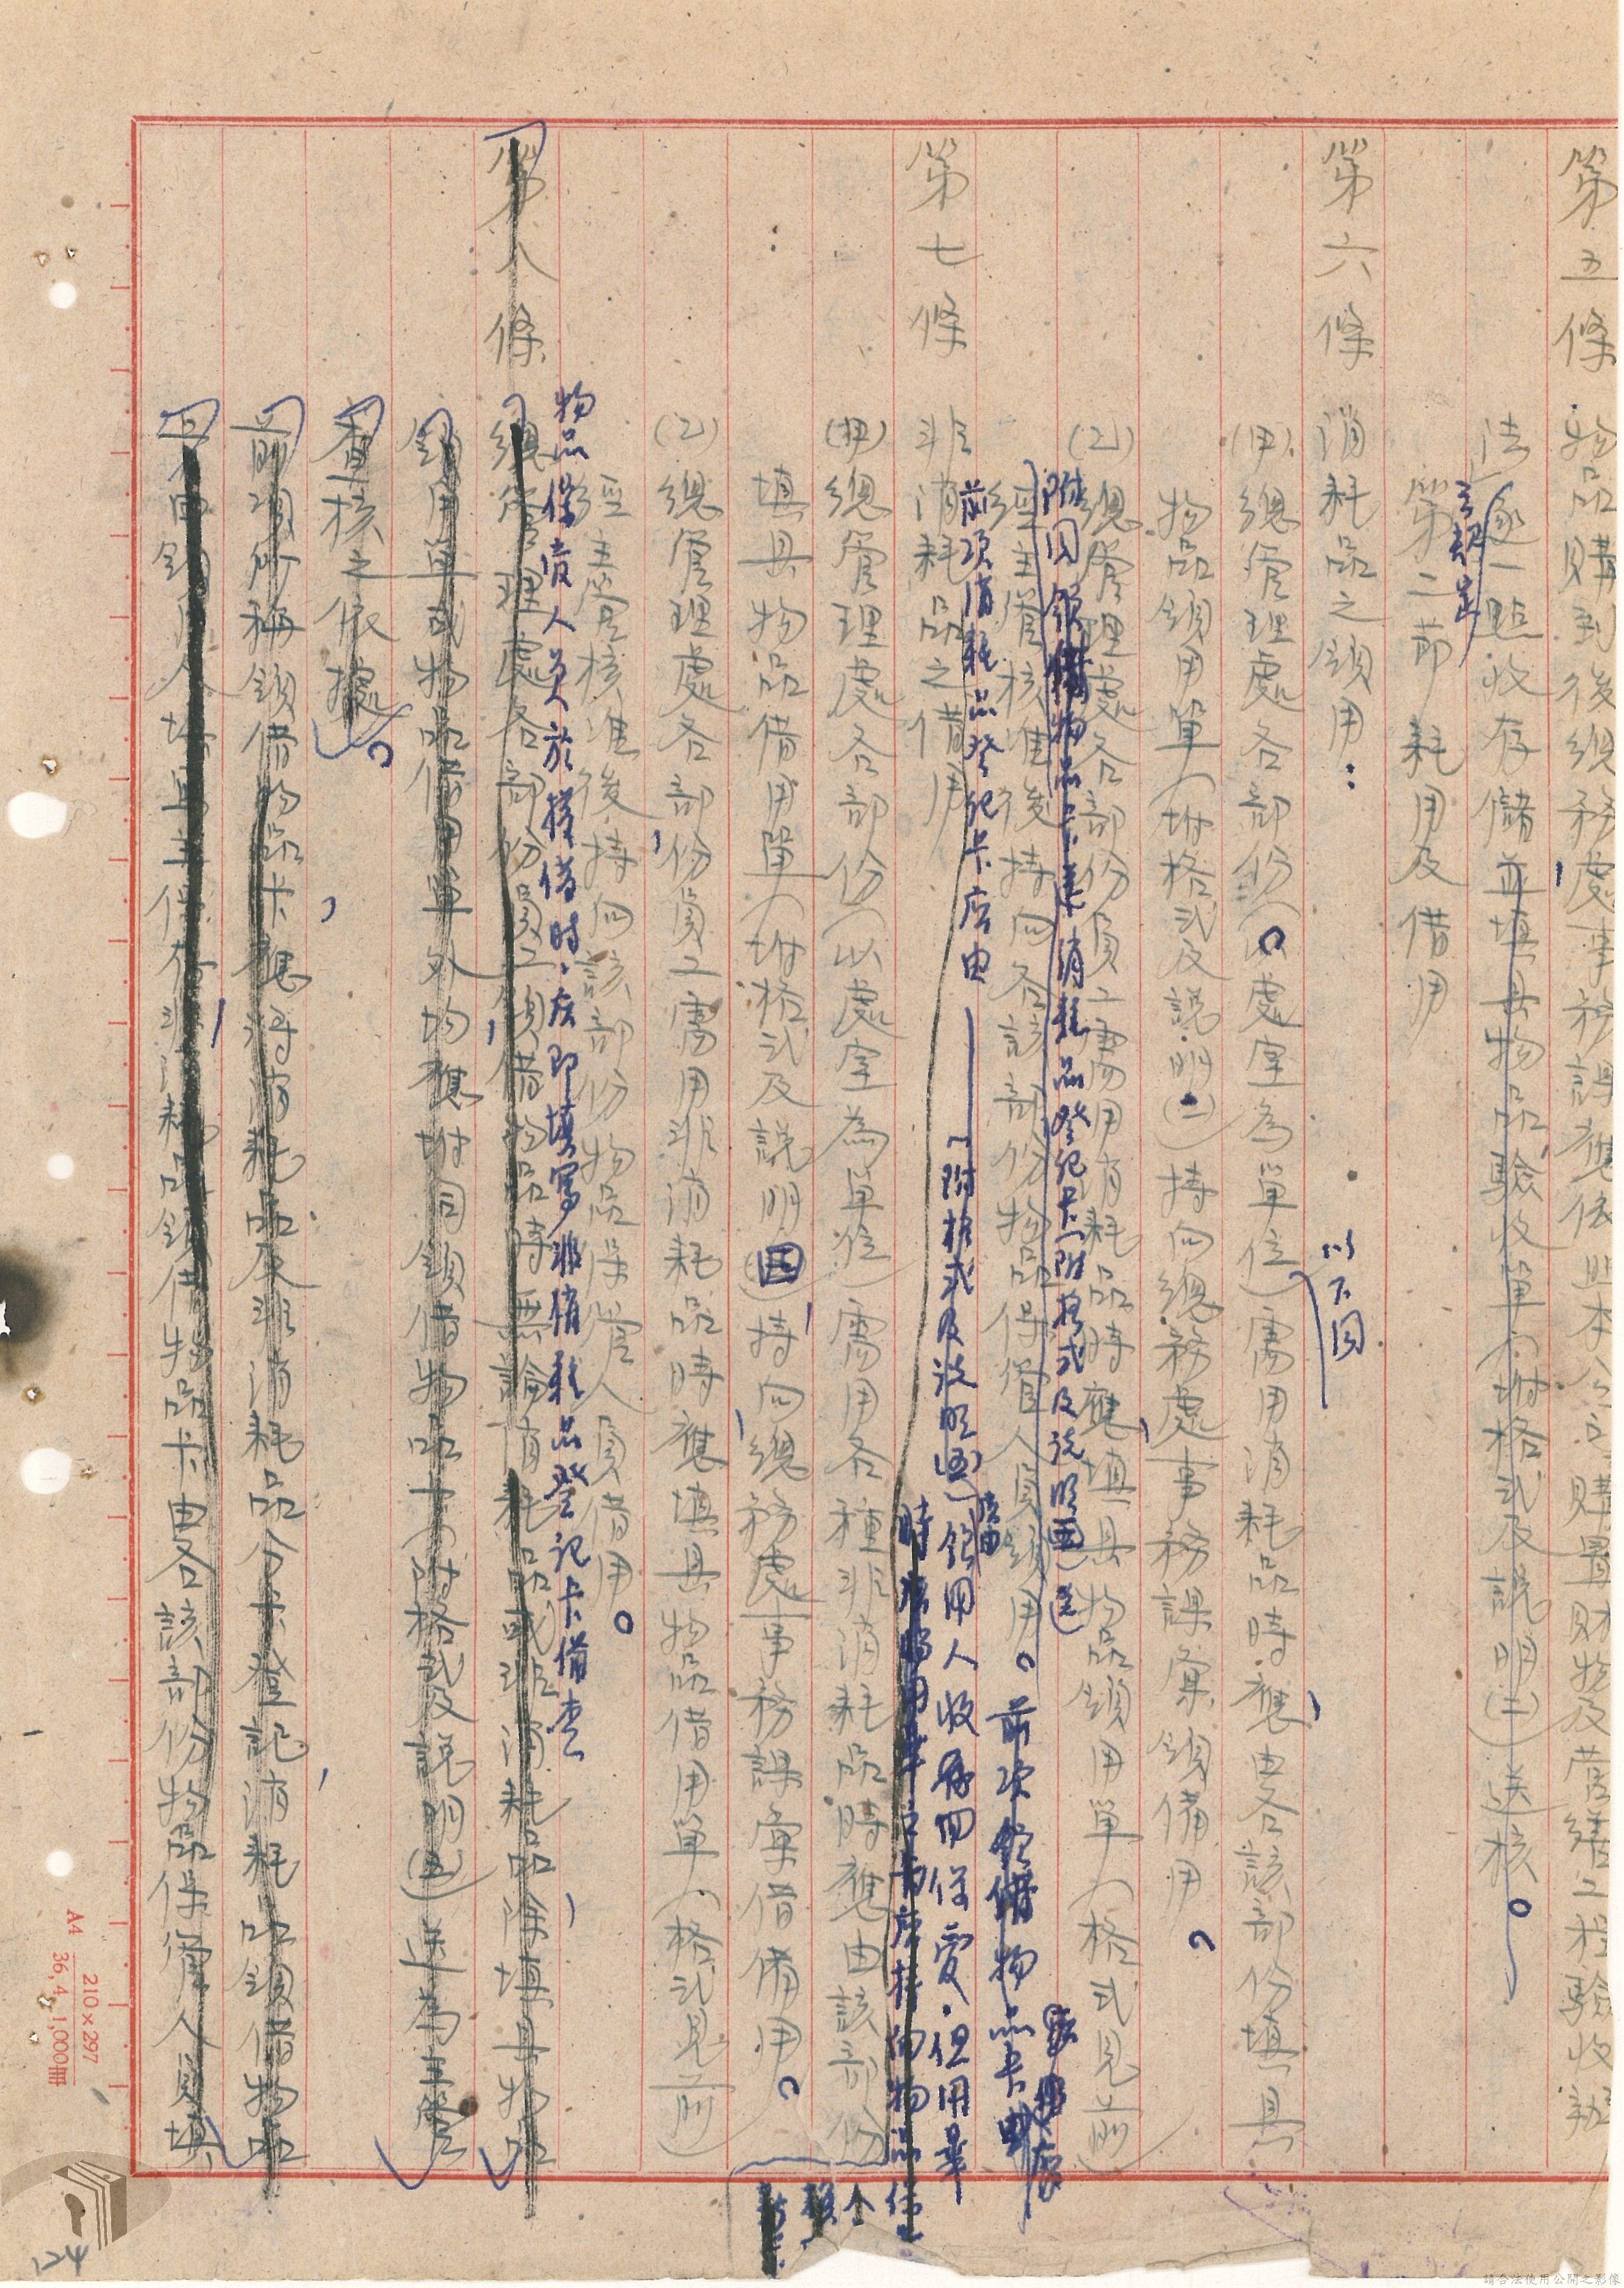 第五條 物品購到後總務處事務課應依照本公司購置財物及營繕工程驗收辦
法之規定逐一點收存儲並填具物品驗收單(附格式及說明(二))送核。
第二節 耗用及借用
第六條 消耗品之領用: 以下同
(甲)總管理處各部份(以處室為單位)需用消耗品時應由各該部份填具
物品領用單(附格式及說明(三))持向總務處事務課彙領備用。
(乙)總管理處各部份員工需用消耗品時應填具物品領用單(格式見前)
附同領備物品卡連消耗品登記卡(附格式及說明四)送
經主管核准後持向各該部份物品保管人員領用。前項領備物品卡
前項消耗品登記卡應由
第七條 非消耗品之借用
(附格式及說明(四))領用人收存回保管,但用畢
時應
(甲)總管理處各部份(以處室為單位)需用各種非消耗品時應由該部份
填具物品借用單(附格式及說明四)持向總務處事務課彙借備用。
(乙)總管理處各部份員工需用非消耗品時應填具物品借用單(格式見前)
經主管核准後持向該部份物品保管人員借用。
物品保管人員於擇借時,應即填寫非消耗品登記卡備查
第八條 總管理處各部份員工領借物品時無論消耗品或非消耗品除填具物品
領用單或物品借用單外均應附同領借物品卡(附格式及說明(五))送為主管
查核之依據。
前項所稱領借物品卡應將消耗品及非消耗品分卡登記消耗品領借物品
卡由領用人填具主保存非消耗品領借物品卡由各該部份物品保管人員填
A4 210×297
36,4,1,000冊
124
請合法使用公開之影像